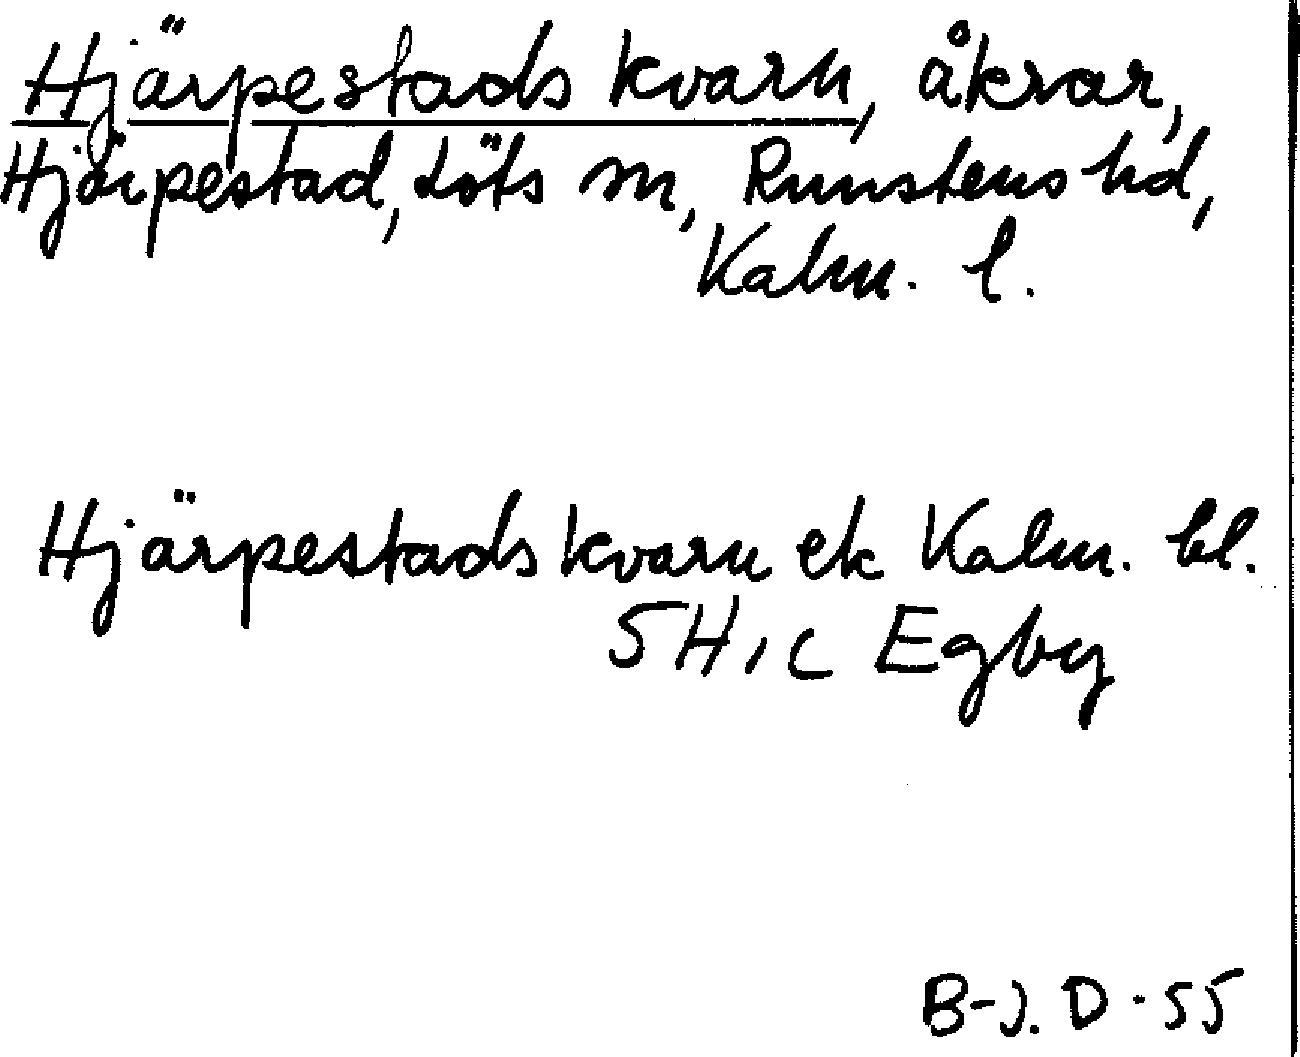 Hjärpestads kvarn, åkrar,
Hjärpestad, Löts sn, Runstens hd,
Kalm. l.
Hjärpestads kvarn ek Kalm. bl.
5H1c Egby
B-J. D-55